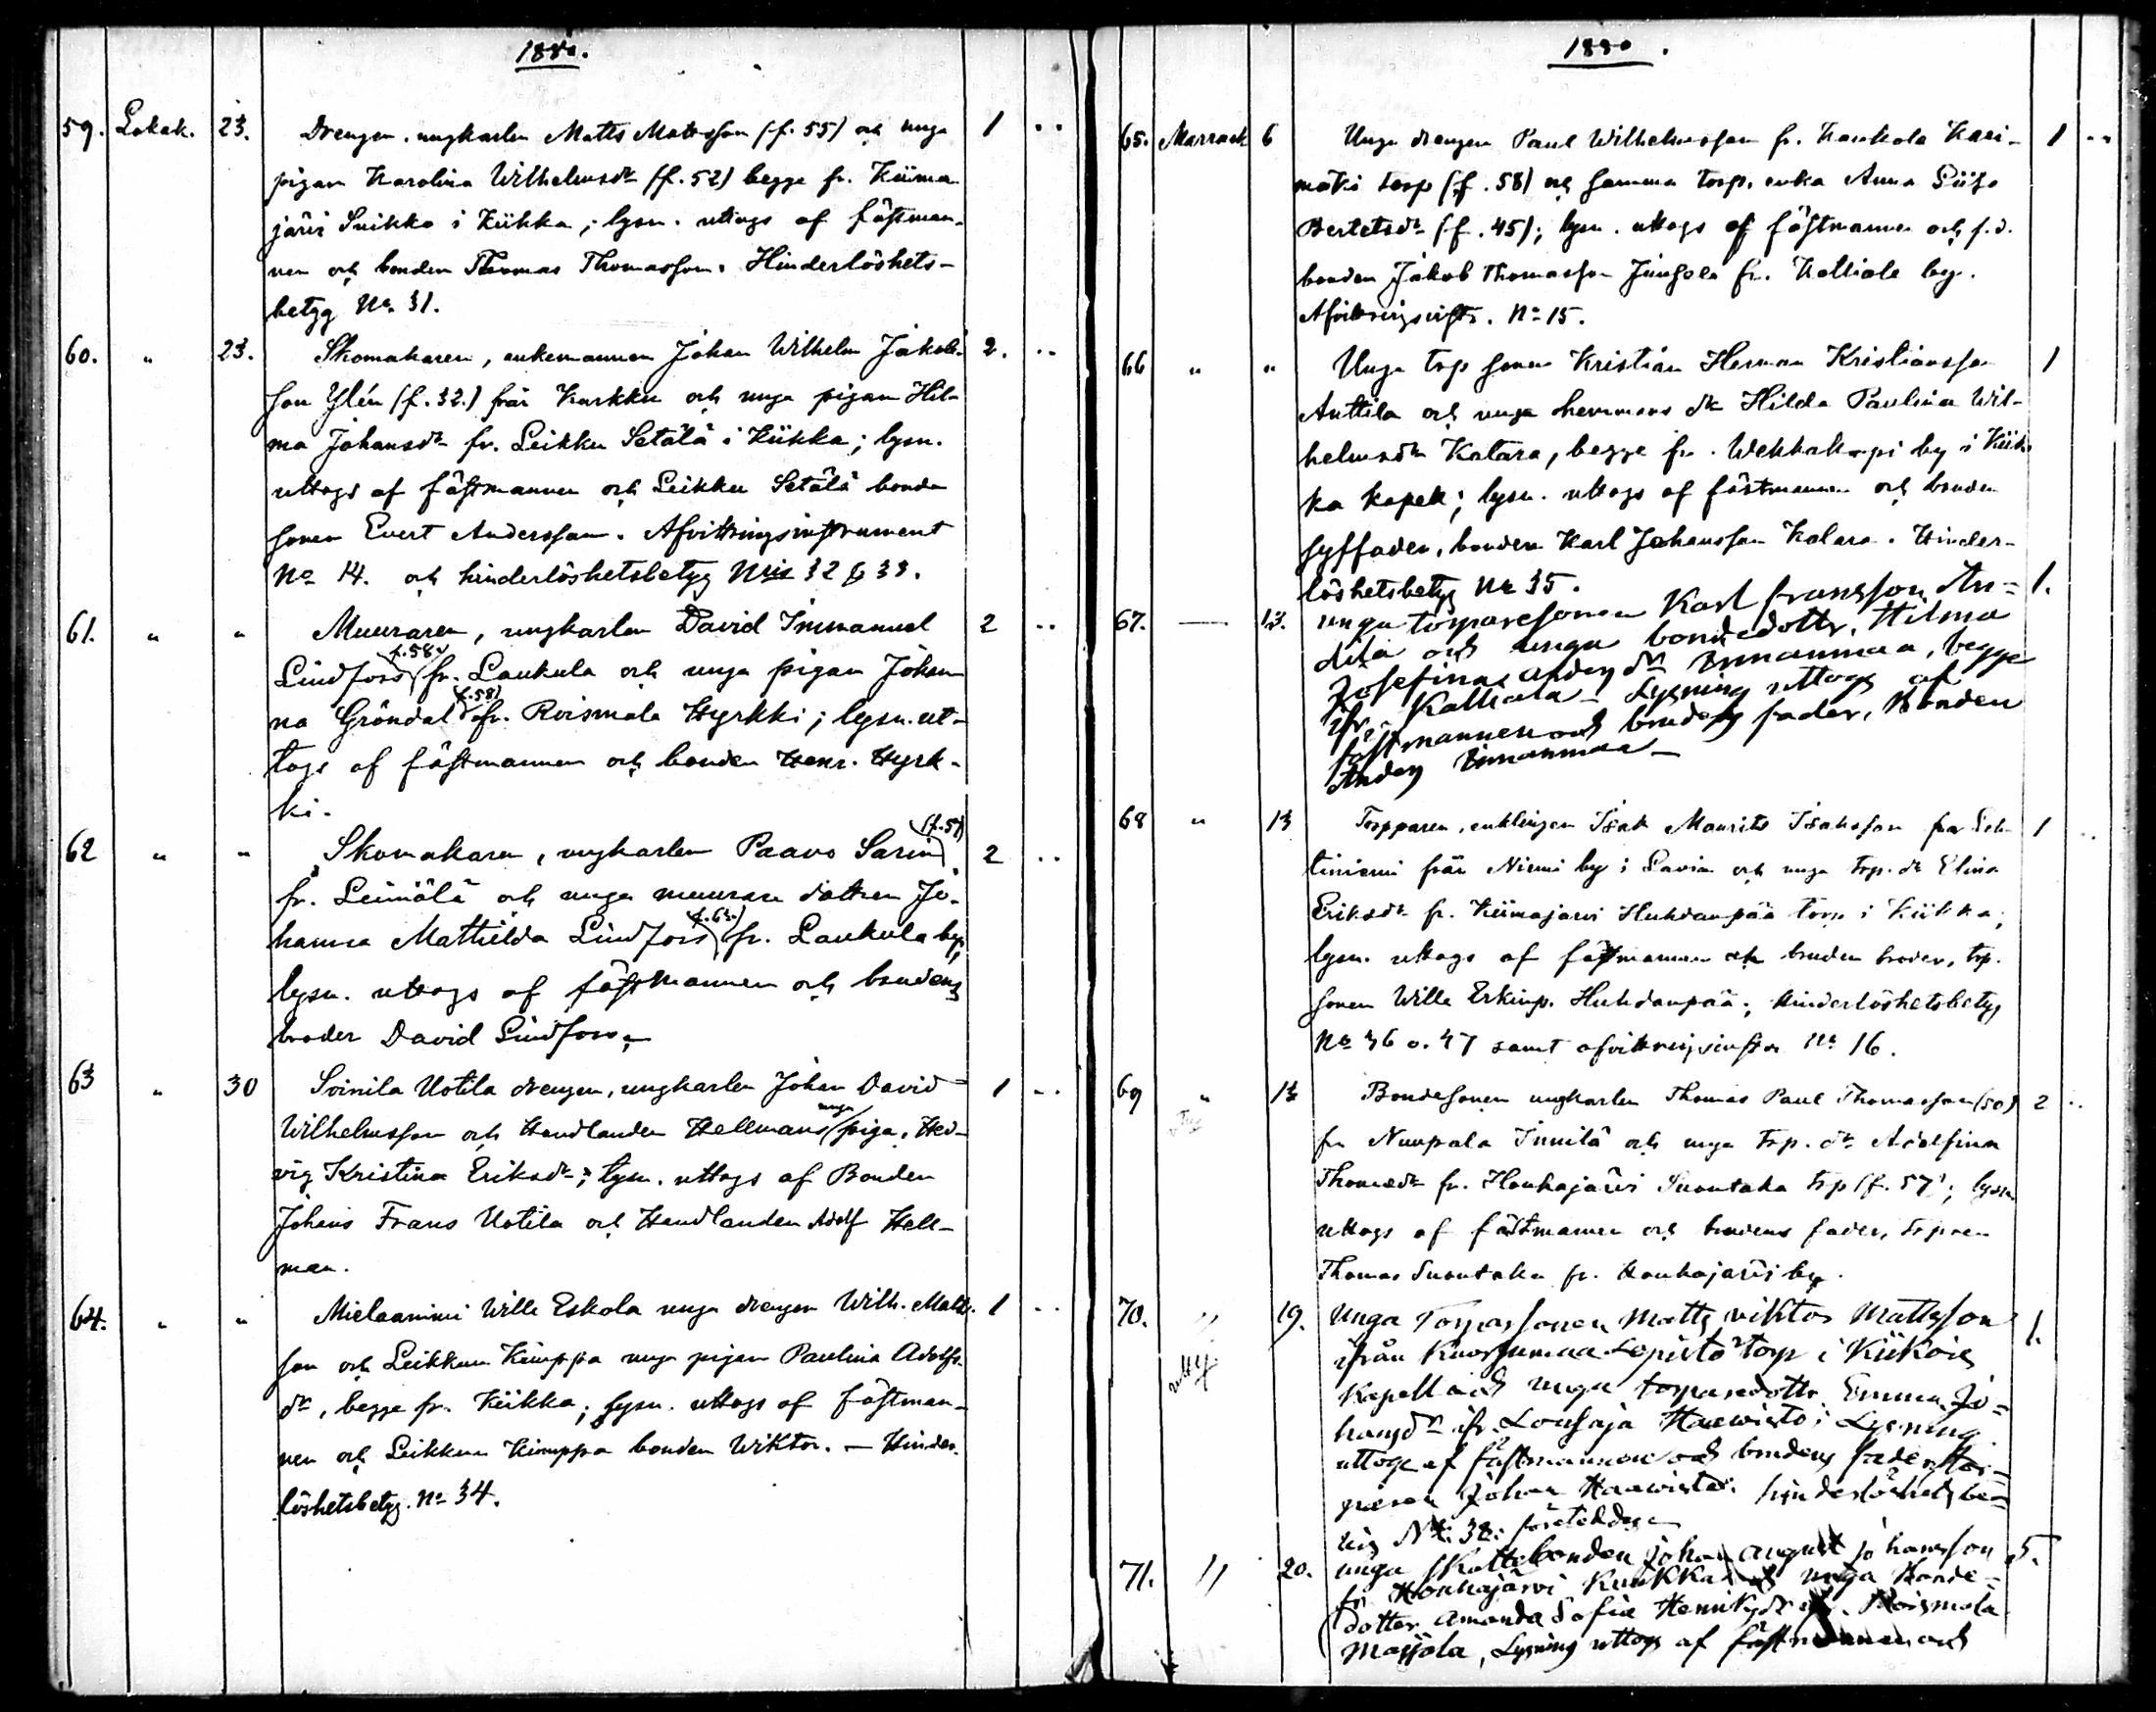 1880.
59. Lokak. 23. Drengen, ungkarlen Matts Mattsson (f. 55) och unga 1 ..
pigan Karolina Wilhelmsdr (f. 52) begge fr. Kiima
järvi Suikka i Kiikka; lysn. uttogs af fästman-
nen och bonden Thomas Thomasson. Hinderlöshets-
betyg No 31.
60. " 23. Skomakaren, enkemannen Johan Wilhelm Jakobs- 2. ..
son Ylén (f. 32.) från Karkku och unga pigan Hil-
ma Johansdr fr. Leikku Setälä i Kiikka; lysn.
uttogs af fästmannen och Leikku Setälä bonde
sonen Evert Andersson. Afvittringsinstrument
No 14. och hinderlöshetsbetyg Nris 32 & 33.
61. " " Muuraren, ungkarlen David Immanuel 2 ..
Lindfors (f. 58.) fr. Laukula och unga pigan Johan
na Gröndal (f. 58) fr. Roismala Hyrkki; lysn. ut-
togs af fästmannen och bonden Henr. Hyrk-
ki.
62 " " Skomakaren, ungkarlen Paavo Sarin (f. 57) 2 ..
fr. Leiniälä och unga muurare dottren Jo-
hanna Mathilda Lindfors (f. 63.) fr. Laukula by;
lysn. uttogs af fästmannen och brudens
broder David Lindfors.
63 " 30 Soinila Uotila drengen, ungkarlen Johan David 1 ..
Wilhelmsson och Handlanden Hellmans unga piga, Hed-
vig Kristina Eriksdr; lysn. uttogs af Bonden
Johans Frans Uotila och Handlanden Adolf Hell-
man.
64. " " Mielaanimi Wille Eskola unga drengen Wilh. Matts- 1 ..
son och Leikkun Kimppa unga pigan Paulina Adolfs-
dr, begge fr. Kiikka; lysn. uttogs af fästman-
nen och Leikkun Kimppa bonden Wiktor. — Hinder-
löshetsbetyg. No 34.
1880.
65. Marrask 6 Unga drengen Paul Wilhelmsson fr. Kaukola Kari- 1 ..
mäki torp (f. 58) och samma torps enka Anna Liisa
Bertetsdr (f. 45); lysn. uttogs af fästmannen och f.d.
bonden Jakob Thomasson fr. Kalliala by.
Afvittringsinstr. No 15.
66 " " Unga torp sonen Kristian Herman Kristiansson 1
Anttila och unga hemmans dr Hilda Paulina Wil-
helmsdr Katara, begge fr. by i Kiik-
ka kapell; lysn. uttogs af fästmannen och bruden
styffader, bonden Karl Johansson Katara. Hinder-
löshetsbetyg No 35.
67. — 13. unga torparesonen Karl Fransson An= 1.
dila och unga bondedottr. Hilma
Josefina Andersdr Linnanmaa, begge
ifr. Kalliala - Lysning uttogs af
fästmannen och brudens fader, Bonden
Anders Linnanmaa —
68 " 13 Torpparen, enklingen Isak Maurits Isaksson fr. Leh- 1 ..
tiniemi från Niemi by i Lavia och unga torp. dr Elina
Eriksdr fr. Kiimajärvi Huhdanpää torp i Kiikka;
lysn. uttogs af fästmannen och bruden broder, torp.
sonen Wille Erkinp. Huhdanpää; Hinderlöshetsbetyg
No 36 o. 37 samt afvittringsinstr No 16.
69 " 13 Bondesonen ungkarlen Thomas Paul Thomasson (50) 2 ..
fr Nuupala Innilä och unga torp. dr Adolfina
Thomasdr fr. Houhajärvi Suontaka torp (f. 57); lysn
uttogs af fästmannen och brudens fader, torparen
Thomas Suontaka fr. Houhajärvi by.
70. " 19. Unga Torparesonen Matts Viktor Mattsson 1.
ifrån Lepistö torp i Kiikois
Kapell och unga torparedottr. Emma Jo=
hansdr ifr. Lousaja Haavisto; Lysning
uttogs af fästmannen och brudens fader tor=
paren Johan Haavisto. hinderlöshetsbe=
vis No 38. företeddes
71. " 20. unga Skattebonden Johan August Johansson 5.
fr Houhajärvi Kuukka och unga Bonde=
dotter Amanda Sofia Henriksdr ifr. Roismala
Marjola, Lysning uttogs af fästmannen och